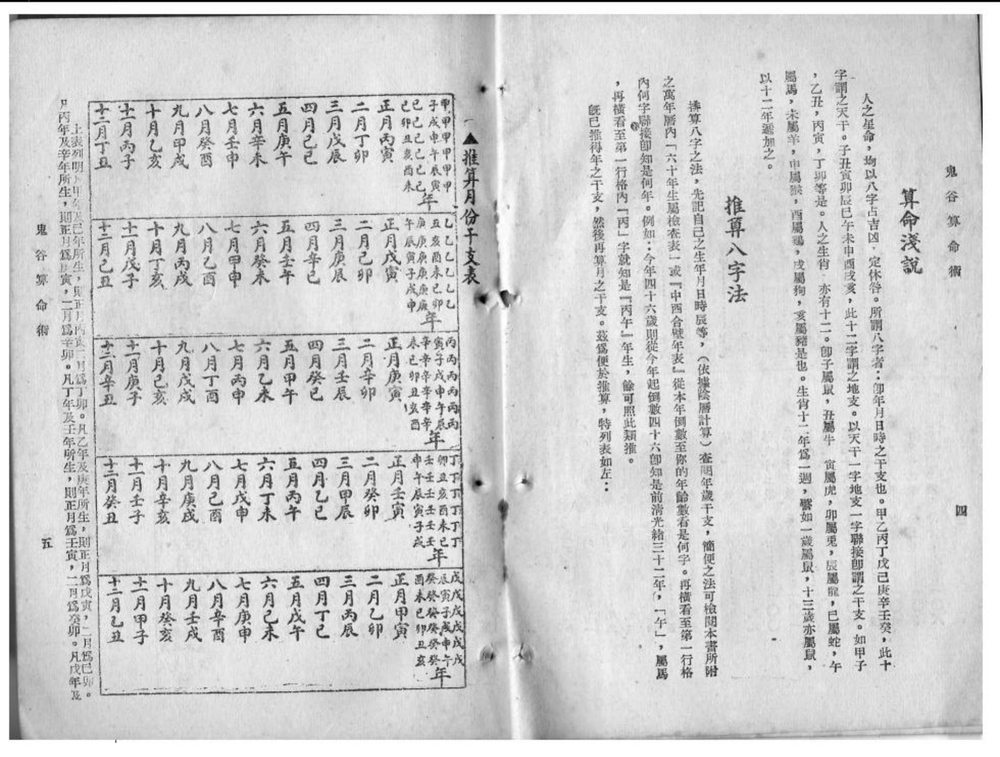 鬼谷算命術
四
算命淺說
人之星命，均以八字占吉凶，定休咎。所謂八字者：卽年月日時之干支也。甲乙丙丁戊己庚辛壬癸，此十
字謂之天干。子丑寅卯辰巳午未申酉戌亥，此十二字謂之地支。以天干一字地支一字聯接卽謂之干支。如甲子
，乙丑，丙寅，丁卯等是。人之生肖，亦有十二。卽子屬鼠，丑屬牛，寅屬虎，卯屬兎，辰屬龍，巳屬蛇，午
屬馬，未屬羊，申屬猴，酉屬鷄，戌屬狗，亥屬豬是也。生肖十二年爲一週，譬如一歲屬鼠，十三歲亦屬鼠，
以十二年遞加之。
推算八字法
推算八字之法，先記自己之生年月日時辰等，（依據陰曆計算）查明年歲干支，簡便之法可檢閱本書所附
之萬年曆內「六十年生屬檢查表」或『中西合曆年表』從本年倒數至你的年齡數看是何字。再橫看至第一行格
內何字聯接卽知是何年。例如：今年四十六歲則從今年起倒數四十六卽知是前清光緒三十二年，「午」，屬馬
，再橫看至第一行格內『丙』字就知是『丙午』年生，餘可照此類推。
旣已推得年之干支，然後再算月之干支。茲爲便於推算，特列表如左：
▲推算月份干支表
甲甲甲甲甲甲
子戌申午辰寅
己己己己己己
巳卯丑亥酉未
年
正月丙寅
二月丁卯
三月戊辰
四月己巳
五月庚午
六月辛未
七月壬申
八月癸酉
九月甲戌
十月乙亥
十一月丙子
十二月丁丑
乙乙乙乙乙乙
丑亥酉未巳卯
庚庚庚庚庚庚
午辰寅子戌申
年
正月戊寅
二月己卯
三月庚辰
四月辛巳
五月壬午
六月癸未
七月甲申
八月乙酉
九月丙戌
十月丁亥
十一月戊子
十二月己丑
丙丙丙丙丙丙
寅子戌申午辰
辛辛辛辛辛辛
未巳卯丑亥酉
年
正月庚寅
二月辛卯
三月壬辰
四月癸巳
五月甲午
六月乙未
七月丙申
八月丁酉
九月戊戌
十月己亥
十一月庚子
十二月辛丑
丁丁丁丁丁丁
卯丑亥酉未巳
壬壬壬壬壬壬
申午辰寅子戌
年
正月壬寅
二月癸卯
三月甲辰
四月乙巳
五月丙午
六月丁未
七月戊申
八月己酉
九月庚戌
十月辛亥
十一月壬子
十二月癸丑
戊戊戊戊戊戊
辰寅子戌申午
癸癸癸癸癸癸
酉未巳卯丑亥
年
正月甲寅
二月乙卯
三月丙辰
四月丁巳
五月戊午
六月己未
七月庚申
八月辛酉
九月壬戌
十月癸亥
十一月甲子
十二月乙丑
上表列明，凡甲年及己年所生，則正月丙寅二月爲丁卯。凡乙年及庚年所生，則正月爲戊寅，二月爲己卯。
凡丙年及辛年所生，則正月爲庚寅，二月爲辛卯。凡丁年及壬年所生，則正月爲壬寅，二月爲癸卯。凡戊年及
鬼谷算命術
五